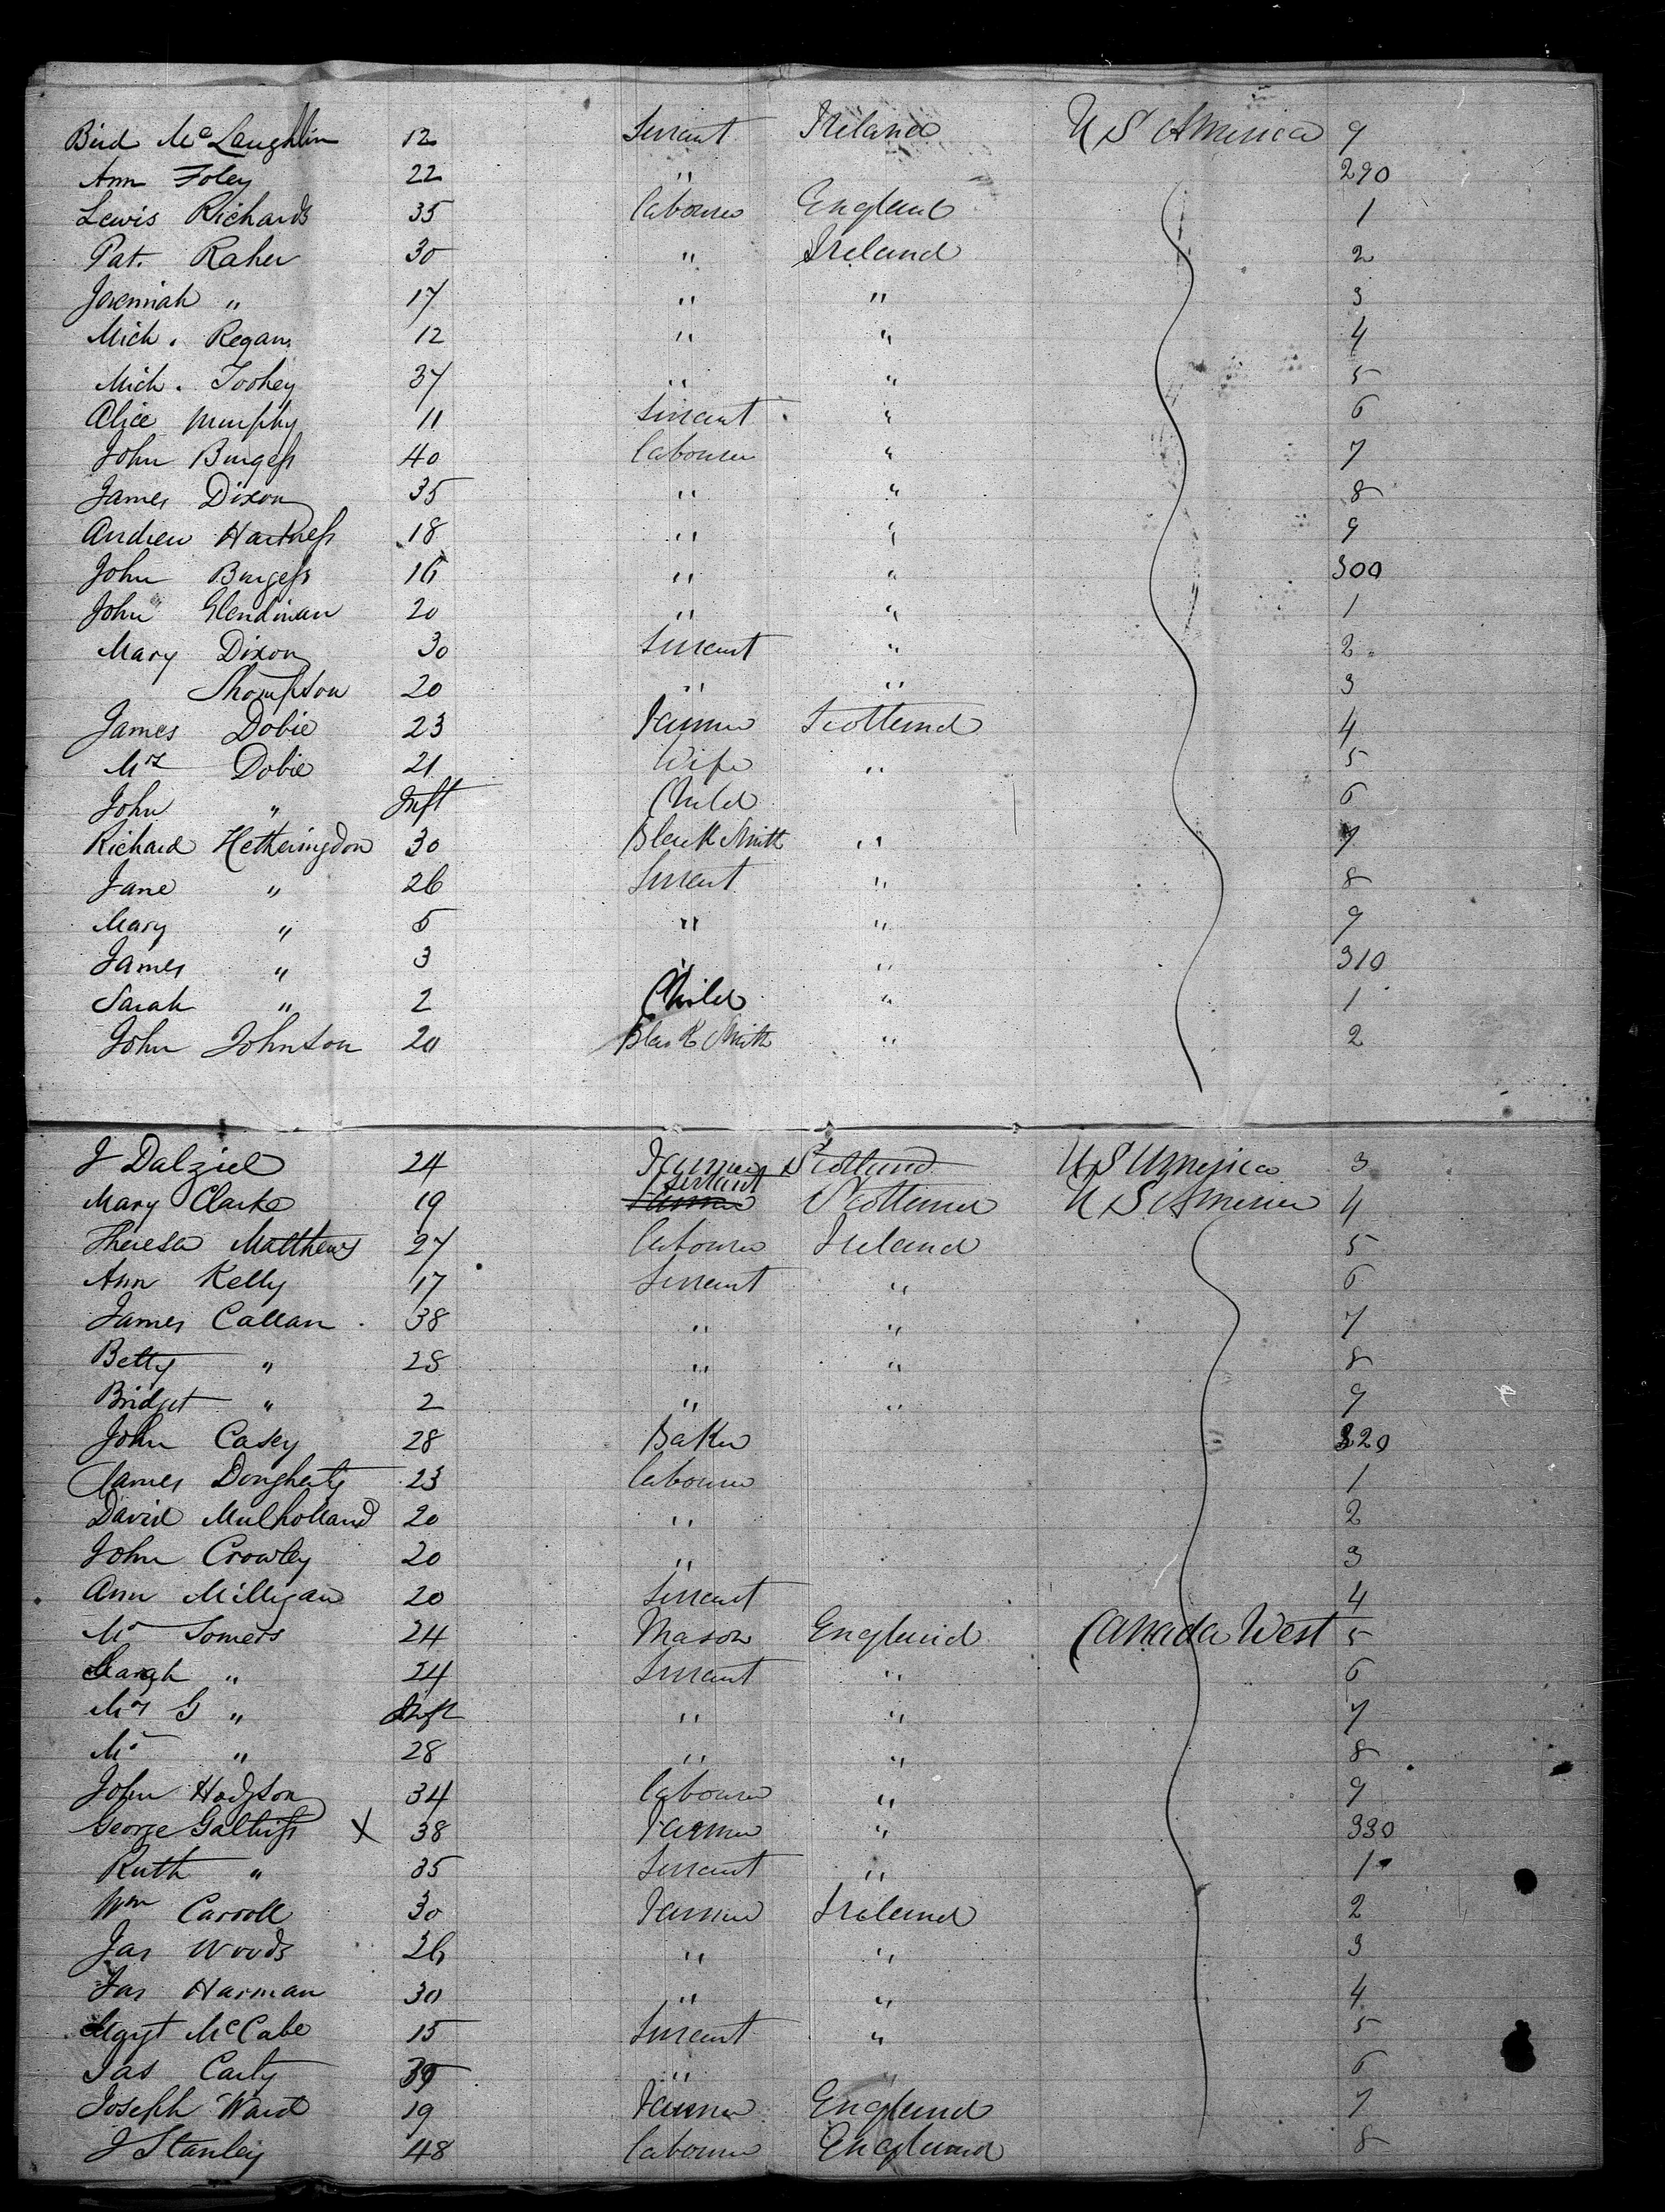 Bird McLaughlin 12 Servant Ireland U S America 9
Ann Foley 22 " 290
Lewis Richards 35 labourer England 1
Pat. Raher 30 " Ireland 2
Jeremiah " 17 " " 3
Mich. Regan 12 " " 4
Mich. Toohey 37 " " 5
Alice Murphy 11 Servant " 6
John Burgess 40 labourer " 7
James Dixon 35 " " 8
Andrew Hartness 18 " " 9
John Burgess 16 " " 300
John Glendinan 20 " " 1
Mary Dixon 30 Servant " 2
Thompson 20 " " 3
James Dobie 23 Farmer Scotland 4
Mrs Dobie 21 Wife " 5
John " Inft Child 6
Richard Hetheringdon 30 Black Smith " 7
Jane " 26 Servant " 8
Mary " 5 " " 9
James " 3 " " 310
Sarah " 2 Child " 1
John Johnson 20 Black Smith " 2
J Dalziel 24 Farmer Scotland U S America 3
Mary Clarke 19 Servant Scotland U S America 4
Theresa Matthews 27 labourer Ireland 5
Ann Kelly 17 Servant " 6
James Callan 38 " " 7
Betty " 28 " " 8
Bridget " 2 " " 9
John Casey 28 Baker 320
James Dougherty 23 labourer 1
David Mulholland 20 " 2
John Crowley 20 " 3
Ann Milligan 20 Servant 4
Mr Somers 24 Mason England Canada West 5
Sarah " 24 Servant " 6
Mr G " Inft " " 7
Mr " 28 " " 8
John Hodgson 34 labourer " 9
George X 38 Farmer " 330
Ruth " 35 Servant " 1
Wm Carroll 30 Farmer Ireland 2
Jas Woods 26 " " 3
Jas Harman 30 " " 4
Magt McCabe 15 Servant " 5
Jas Carty " " 6
Joseph Ward 19 Farmer England 7
J Stanley 48 labourer England 8